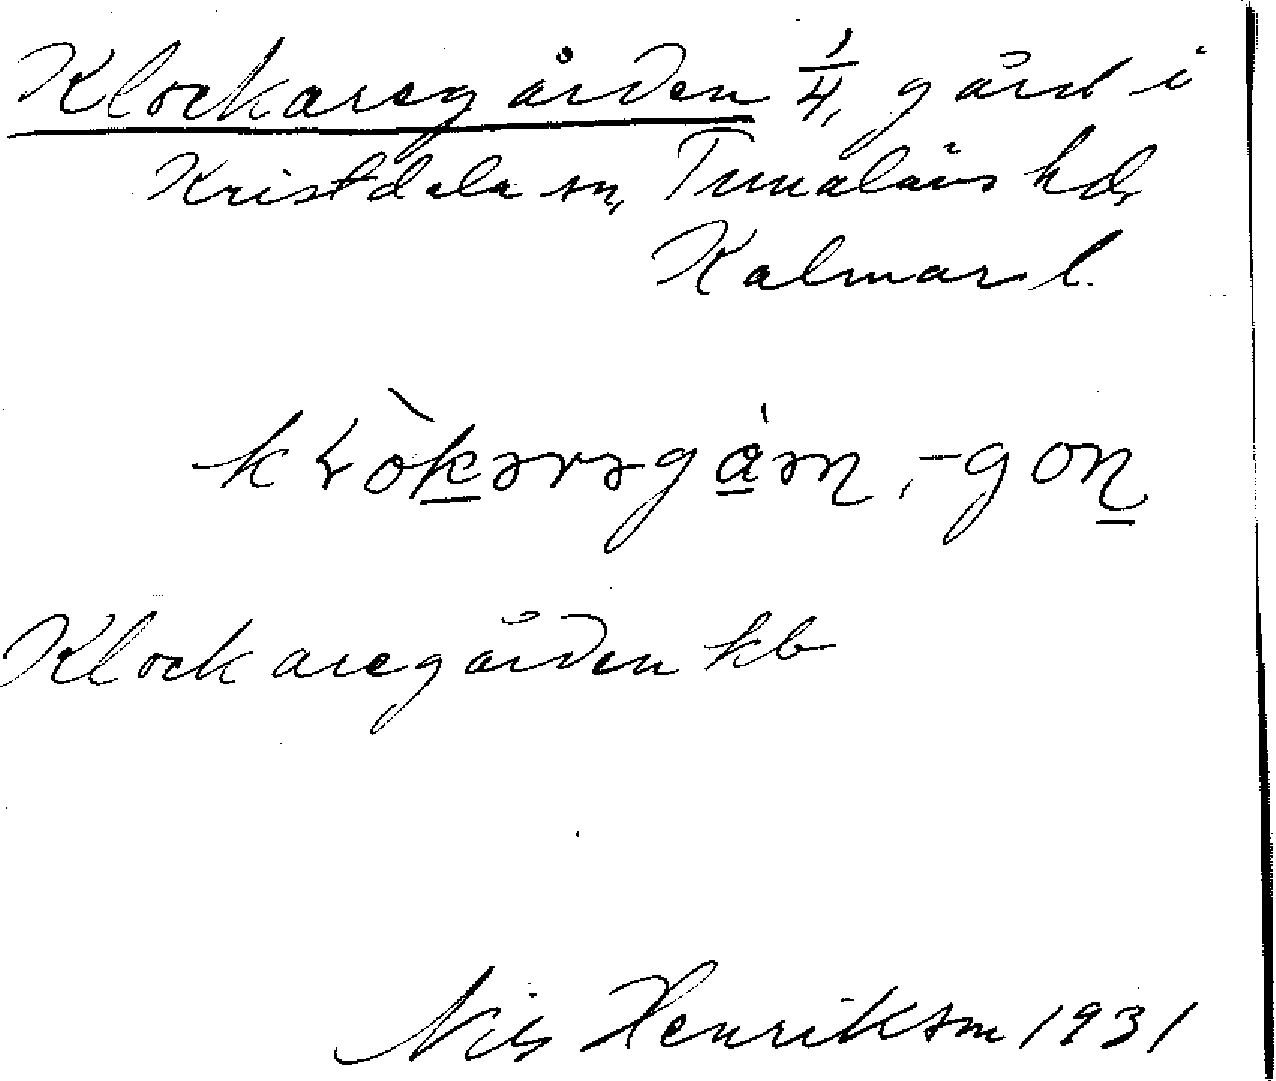 Klockaregården 1/4, gård i
Kristdala sn, Tunaläns hd,
Kalmar l.
Klockaregården kb
Nils Henrikson 1931